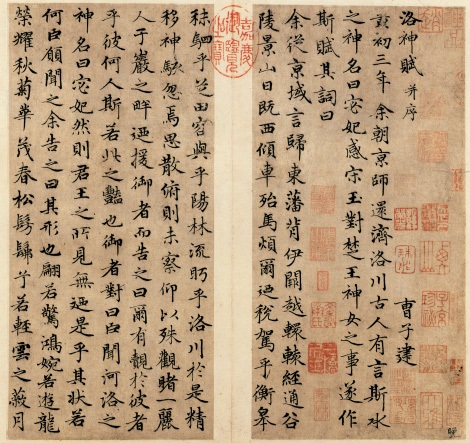 洛神賦 并序
曹子建
黃初三年余朝京師還濟洛川古人有言斯水
之神名曰宓妃感宋玉對楚王神女之事遂作
斯賦其詞曰
余從京域言歸東藩背伊闕越轘轅經通谷
陵景山日既西傾車殆馬煩爾迺稅駕乎衡皋
嘉慶御覽之寶
秣駟乎芝田容與乎陽林流眄乎洛川於是精
移神駭忽焉思散俯則未察仰以殊觀睹一麗
人于巖之畔迺援御者而告之曰爾有覿於彼者
乎彼何人斯若此之豔也御者對曰臣聞河洛之
神名曰宓妃然則君王之所見無迺是乎其狀若
何臣願聞之余告之曰其形也翩若驚鴻婉若遊龍
榮耀秋菊華茂春松髣髴兮若輕雲之蔽月